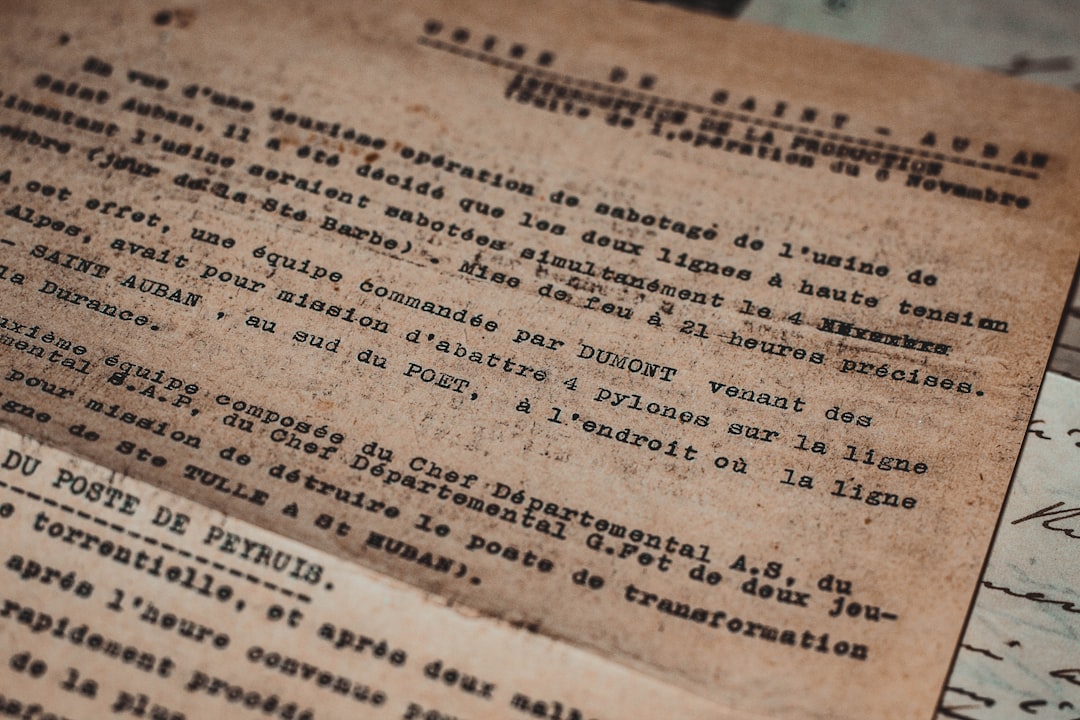 USINE DE SAINT - AUBAN
INTERRUPTION DE LA PRODUCTION
(Suite de l'opération du 6 Novembre
En vue d'une deuxième opération de sabotage de l'usine de
Saint Auban, il a été décidé que les deux lignes à haute tension
imentant l'usine seraient sabotées simultanément le 4
embre (jour de la Ste Barbe). Mise de feu à 21 heures précises.
A cet effet, une équipe commandée par DUMONT venant des
Alpes, avait pour mission d'abattre 4 pylones sur la ligne
- SAINT AUBAN , au sud du POET, à l'endroit où la ligne
la Durance.
uxième équipe composée du Chef Départemental A.S. du
mental S.A.P. du Chef Départemental G.F et de deux jeu-
pour mission de détruire le poste de transformation
igne de Ste TULLE à St AUBAN).
DU POSTE DE PEYRUIS.
e torrentielle, et après deux
après l'heure convenue
rapidement procédé
de la plus